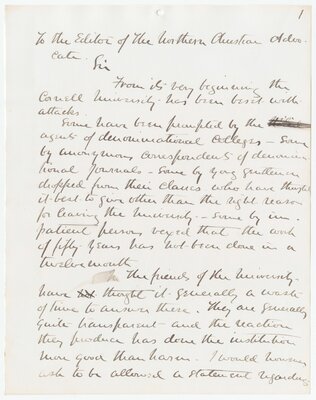 1
To the Editor of The Northern Christian Advo-
cate.
Sir
From its very beginning the
Cornell University has been beset with
attacks.
Some have been prompted by the
agents of denominational colleges – Some
by anonymous correspondents of denomina
tional Journals – Some by young gentlemen
dropped from their classes who have thought
it best to give other than the right reason
for leaving the University. – Some by im-
patient persons vexed that the work
of fifty years has not been done in a
twelve month
the friends of the University
have thought it generally a waste
of time to answer these. They are generally
quite transparent and the reaction
they produce has done the institution
more good than harm. I would however
ask to be allowed a statement regarding